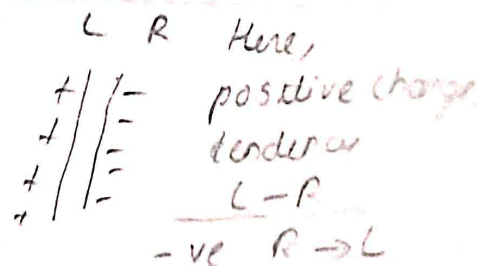 L R Here,
+ - positive charge
+ - tendence
+ - L - R
+ -
-ve R → L